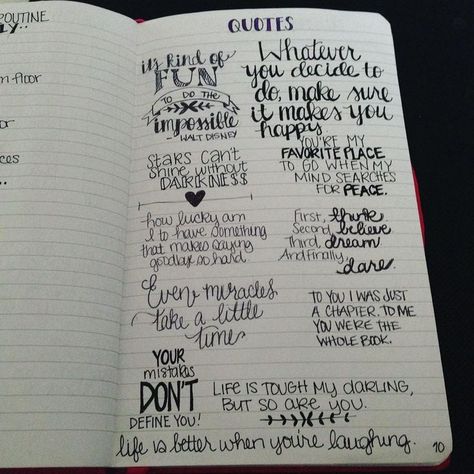 ROUTINE
LY..
m floor
or
ces
QUOTES
it's kind of
FUN
TO DO THE
impossible
- WALT DISNEY
Whatever
you decide to
do, make sure
it makes you
happy
YOU'RE MY
FAVORITE PLACE
TO GO WHEN MY
MIND SEARCHES
FOR PEACE.
STARS CAN'T
SHINE WITHOUT
DARKNESS
how lucky am
I to have something
that makes saying
goodbye so hard
First, think
Second, believe
Third, dream
And finally,
dare.
Even miracles
take a little
time
TO YOU I WAS JUST
A CHAPTER. TO ME
YOU WERE THE
WHOLE BOOK.
YOUR
mistakes
DON'T
DEFINE YOU!
LIFE IS TOUGH MY DARLING,
BUT SO ARE YOU.
life is better when you're laughing.
70